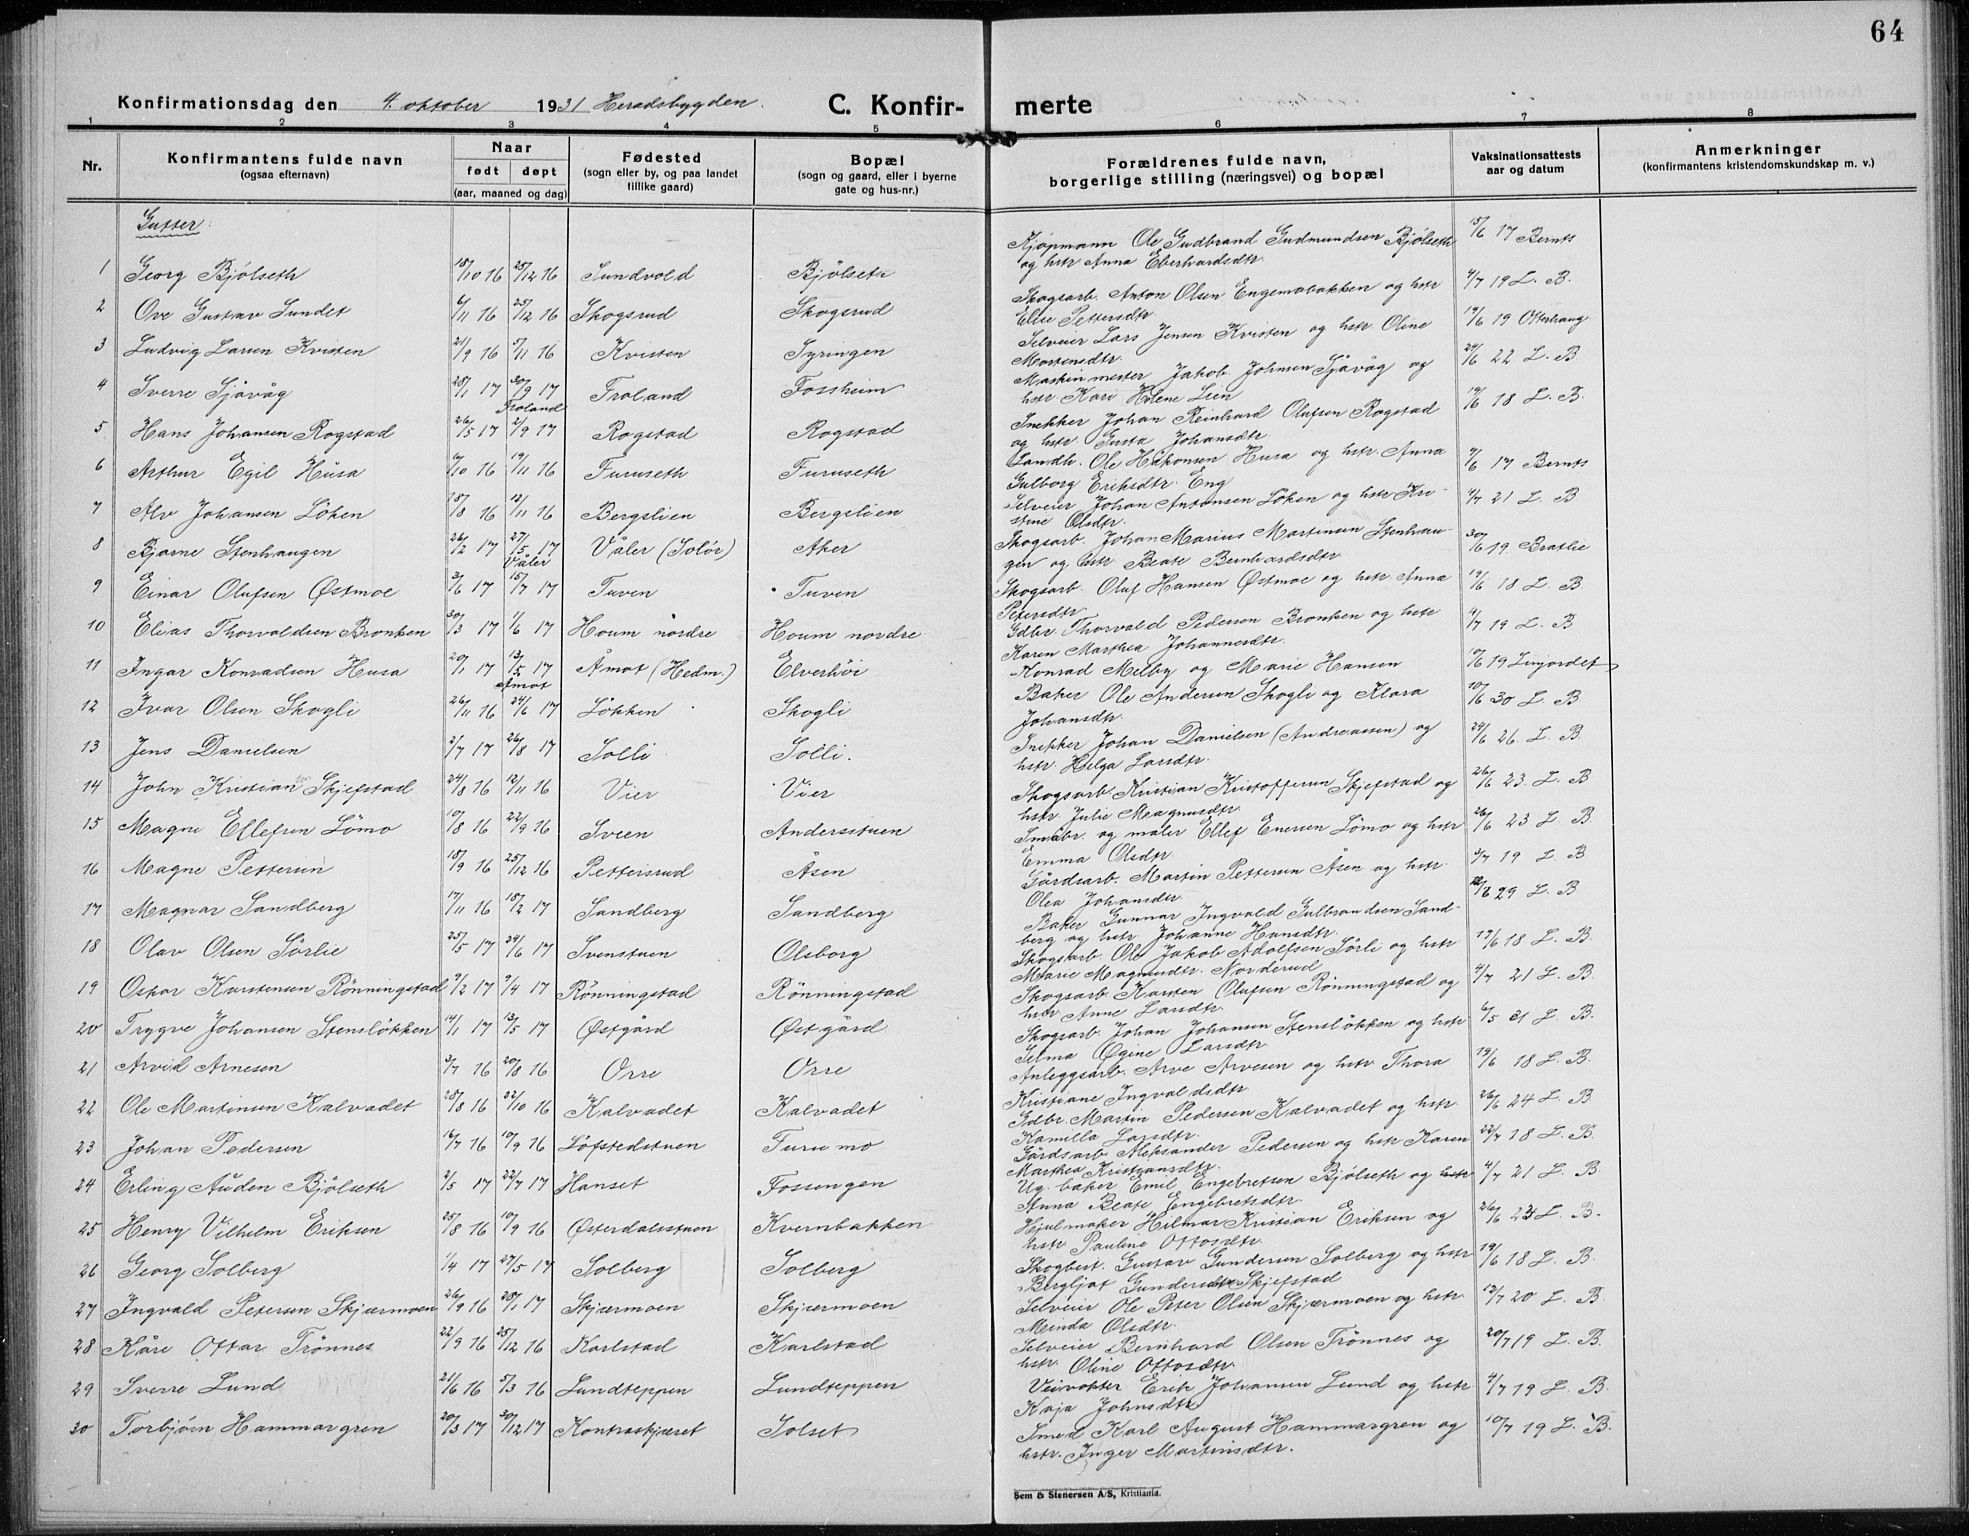 64
Konfirmationsdag den 4. oktober 1931 Heradsbygden. C. Konfirmerte
1 2 3 4 5 6 7 8
Nr. Konfirmantens fulde navn (ogsaa efternavn) Naar født døpt (aar, maaned og dag) Fødested (sogn eller by, og paa landet tillike gaard) Bopæl (sogn og gaard, eller i byerne gate og hus-nr.) Forældrenes fulde navn, borgerlige stilling (næringsvei) og bopæl Vaksinationsattests aar og datum Anmerkninger (konfirmantens kristendomskundskap m. v.)
Gutter:
1 Georg Bjølseth 18/10 16 25/12 16 Sundvold Bjølseth Kjøpmann Ole Gudbrand Gudmundsen Bjølseth 15/6 17 Bernts
og hstr Anna Eberhardsdtr.
2 Ove Gustav Sundet 6/11 16 25/12 16 Skogsrud Skogsrud Skogsarb. Anton Olsen Engemobakken og hstr 4/7 19 L. B.
Elise Pettersdtr.
3 Ludvig Larsen Kvisten 21/9 16 5/11 16 Kvisten Syringen Selveier Lars Jensen Kvisten og hstr Oline 19/6 19 Otterhaug
Mortensdtr.
4 Sverre Sjåvåg 28/1 17 30/9 17 Froland Froland Fossheim Maskinmester Jakob Johnsen Sjåvåg og 24/6 22 L. B
hstr Kari Helene Lien
5 Hans Johansen Rogstad 26/5 17 2/9 17 Rogstad Rogstad Snekker Johan Reinhard Olufsen Rogstad 19/6 18 L. B.
og hstr Gusta Johansdtr.
6 Arthur Egil Husa 6/10 16 19/11 16 Furuseth Furuseth Landh. Ole Håkonsen Husa og hstr. Anna 7/6 17 Bernts
Gulborg Eriksdtr. Eng
7 Alv Johansen Løken 18/8 16 13/11 16 Bergslien Bergslien Selveier Johan Antonsen Løken og hstr Kri- 4/7 21 L. B
stine Olsdtr.
8 Bjarne Stenhaugen 26/2 17 27/5 17 Våler Våler (Solør) Aker Skogsarb. Johan Marius Martinsen Stenhau- 30/6 19 Bratlie
gen og hstr Beate Bernhardsdtr.
9 Einar Olufsen Østmoe 3/6 17 15/7 17 Tuven Tuven Skogsarb. Oluf Hansen Østmoe og hstr. Anna 19/6 18 L. B
Petersdtr.
10 Elias Thorvaldsen Bronken 30/3 17 1/6 17 Houm nordre Houm nordre Gdbr. Thorvald Pedersen Bronken og hstr 4/7 19 L. B
Karen Marthea Johannesdtr.
11 Ingar Konradsen Husa 20/1 17 13/5 17 Åmot Åmot (Hedm.) Elverhöi Konrad Melby og Marie Hansen 10/6 19 Linjordet
12 Ivar Olsen Skogli 26/11 16 24/6 17 Løkken Skogli Baker Ole Andersen Skogli og Klara 10/6 30 L. B
Johansdtr.
13 Jens Danielsen 2/7 17 26/8 17 Solli Solli. Snekker Johan Danielsen (Andreassen) og 24/6 26. L. B.
hstr. Helga Larsdtr.
14 John Kristian Skjefstad 24/8 16 12/11 16 Vier Vier Skogsarb. Kristian Kristoffersen Skjefstad og 26/6 23. L. B
hstr Julie Magnusdtr.
15 Magne Ellefsen Lömo 10/8 16 22/9 16 Sveen Andersstuen Småbr. og maler Ellef Enersen Lömo og hstr 26/6 23 L. B.
Emma Olsdtr.
16 Magne Pettersen 18/9 16 25/12 16 Pettersrud Åsen Gårdsarb. Martin Pettersen Åsen og hstr. 3/7 19 L. B
Olea Johansdtr
17 Magnar Sandberg 17/11 16 18/2 17 Sandberg Sandberg Baker Gunnar Ingvald Gulbrandsen Sand- 12/6 29 L. B
berg og hstr. Johanne Hansdtr.
18 Olav Olsen Sörlie 25/5 17 24/6 17 Svenstuen Olsborg Skogsarb. Ole Jakob Adolfsen Sörli og hstr 19/6 18 L. B.
Marie Magnusdtr. Norderud
19 Oskar Karstensen Rönningstad 9/2 17 9/4 17 Rönningstad Rönningstad Skogsarb Karsten Olufsen Rönningstad og 4/7 21 L. B.
hstr Anne Larsdtr.
20 Trygve Johansen Stenslökken 14/1 17 13/5 17 Østgård Østgård Skogsarb. Johan Johansen Stenslökken og hstr 6/5 21 L. B.
Selma Øgine Larsdtr
21 Arvid Arnesen 3/7 16 20/8 16 Orre Orre Anleggsarb. Arve Arvesen og hstr Thora 19/6 18 L. B.
Kristiane Ingvaldsdtr.
22 Ole Martinsen Kalvadet 28/8 16 22/10 16 Kalvadet Kalvadet Gdbr. Martin Pedersen Kalvadet og hstr. 26/6 24 L. B
Kamilla Larsdtr.
23 Johan Pedersen 16/7 16 10/9 16 Löfstedstuen Furumo Gårdsarb. Aleksander Pedersen og hstr Karen 22/7 18 L. B.
Marthea Kristiansdtr.
24 Erling Auden Bjölseth 2/5 17 22/7 17 Hanset Fossengen Ug. baker Emil Engebretsen Bjölseth og hstr 4/7 21 L. B.
Anna Beate Engebretsdtr.
25 Henry Vilhelm Eriksen 25/8 16 10/9 16 Østerdalsstuen Kvernbakken Hjulmaker Hilmar Kristian Eriksen og 26/6 23 L. B.
hstr Pauline Ottosdtr.
26 Georg Solberg 1/4 17 27/5 17 Solberg Solberg Skogbest. Gustav Gundersen Solberg og hstr 19/6 18 L. B.
Bergljot Gundersdtr Skjefstad
27 Ingvald Petersen Skjærmoen 26/9 16 28/1 17 Skjærmoen Skjærmoen Selveier Ole Peter Olsen Skjærmoen og hstr. 12/7 20 L. B.
Meinda Olsdtr.
28 Kåre Ottar Trönnes 22/9 16 25/12 16 Karlstad Karlstad Selveier Bernhard Olsen Trönnes og 20/7 19 L. B.
hstr. Oline Ottosdtr.
29 Sverre Lund 21/6 16 5/3 16 Lundteppen Lundteppen Veivokter Erik Johansen Lund og hstr 4/7 19 L. B.
Kaja Johnsdtr.
30 Torbjörn Hammargren 20/3 17 30/12 17 Kontraskjæret Solset Smed Karl August Hammargren og 10/7 19 L. B.
hstr. Inger Martinsdtr.
Sem & Stenersen A/S, Kristiania.